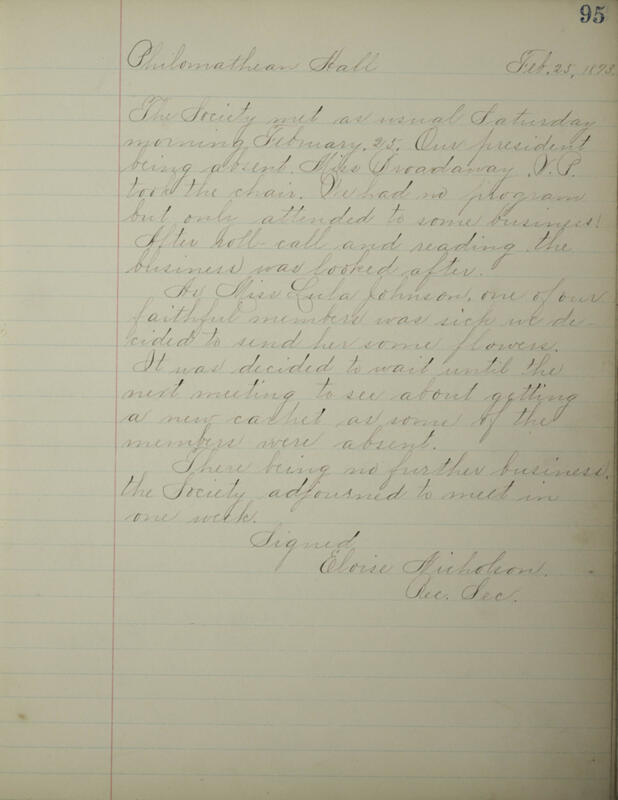 95
Philomathean Hall Feb. 25, 1893.
The Society met as usual Saturday
morning February, 25. Our president
being absent. Miss Broadaway, V. P.
took the chair. We had no program
but only attended to some business!
After roll-call and reading the
business was looked after.
As Miss Lula Johnson, one of our
faithful members was sick we de-
cided to send her some flowers.
It was decided to wait until the
next meeting to see about getting
a new carpet as some of the
members were absent.
There being no further business,
the Society adjourned to meet in
one week.
Signed
Eloise Nicholson.
Rec. Sec.